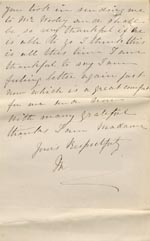 your
in sending me
to Mr and shall
be so very thankful if he
is able to go I think this
is all this time I am
thankful to say I am
feeling better again just
now which is a great comfort
for me and
With many grateful
thanks I am Madam
Yours Respectfully